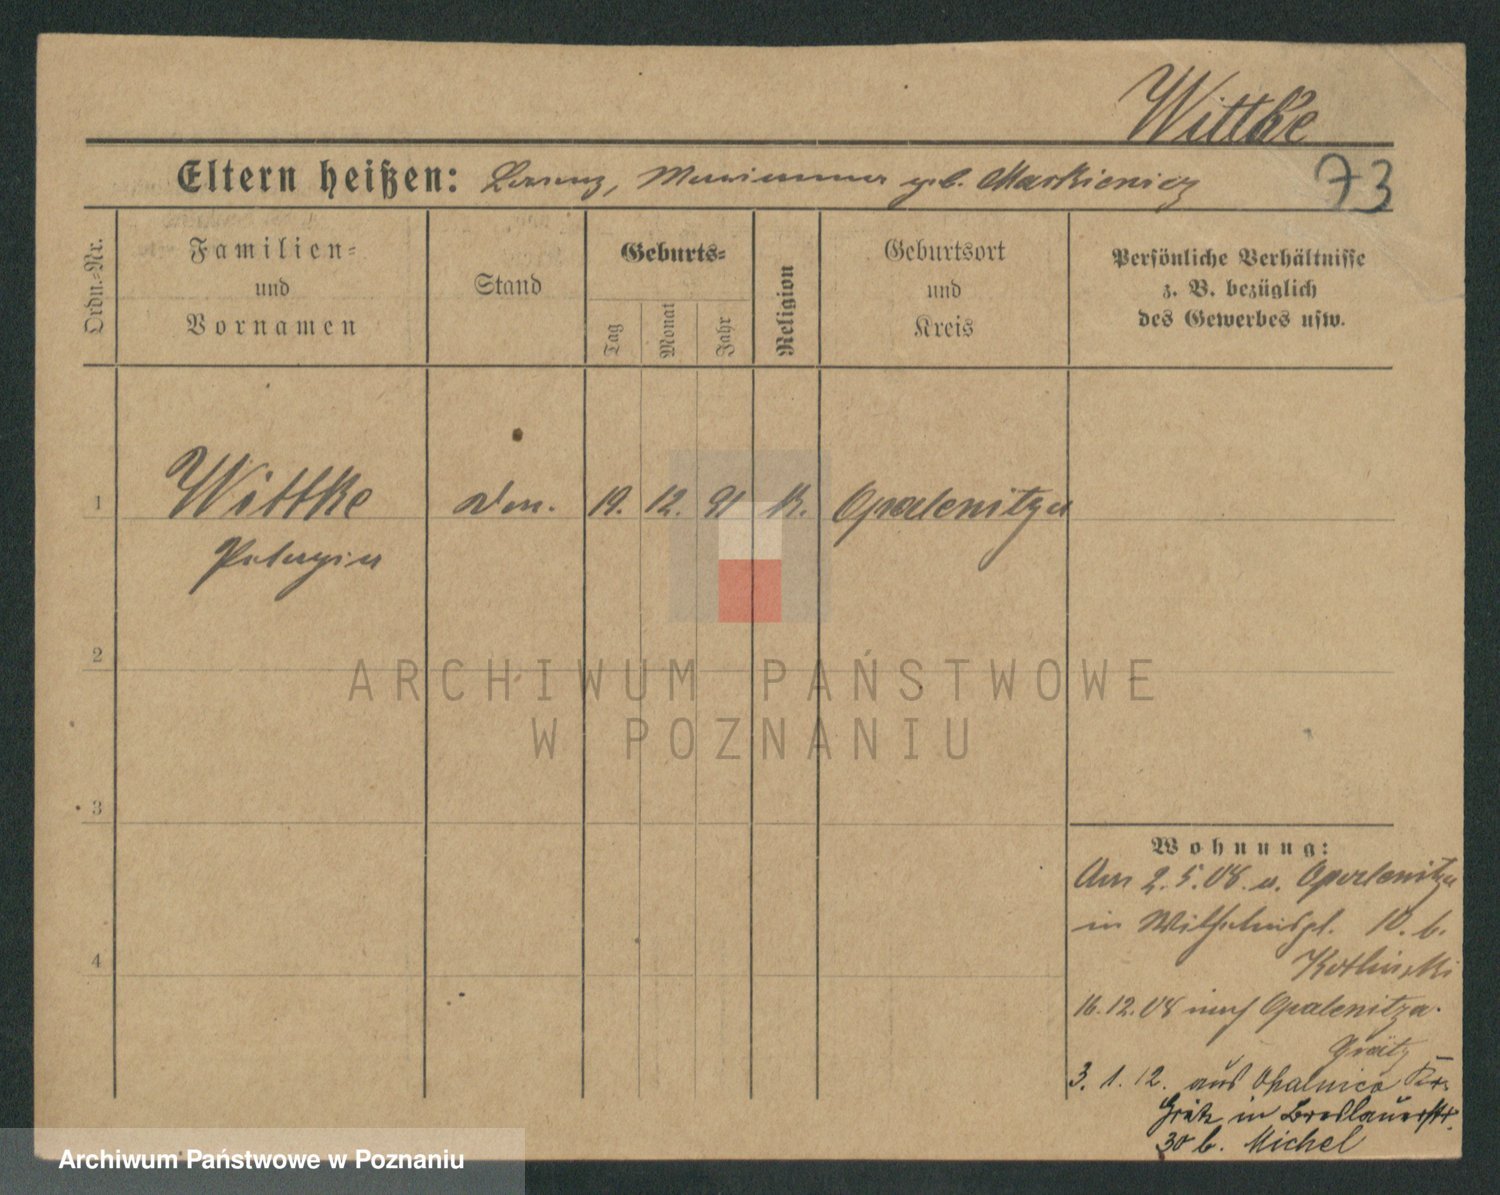 Wittke
Eltern heißen: Lorenz, Marianna geb. Markiewicz
73
Ordn.-Nr.
Familien-
und
Vornamen
Stand
Geburts-
Tag
Monat
Jahr
Religion
Geburtsort
und
Kreis
Persönliche Verhältnisse
z. B. bezüglich
des Gewerbes usw.
1 Wittke 19. 12. 91 K. Opalenitza
Pelagia
2
3
4
Wohnung:
Am 2.5.08. a. Opalenitza
in Wilhelmspl. 10. b.
Kotlinski
16.12.08 nach Opalenitza.
Grätz
3. 1. 12. aus Opalenica Kr.
Grätz in Breslauerstr.
30 b. Michel
ARCHIWUM PAŃSTWOWE
W POZNANIU
Archiwum Państwowe w Poznaniu